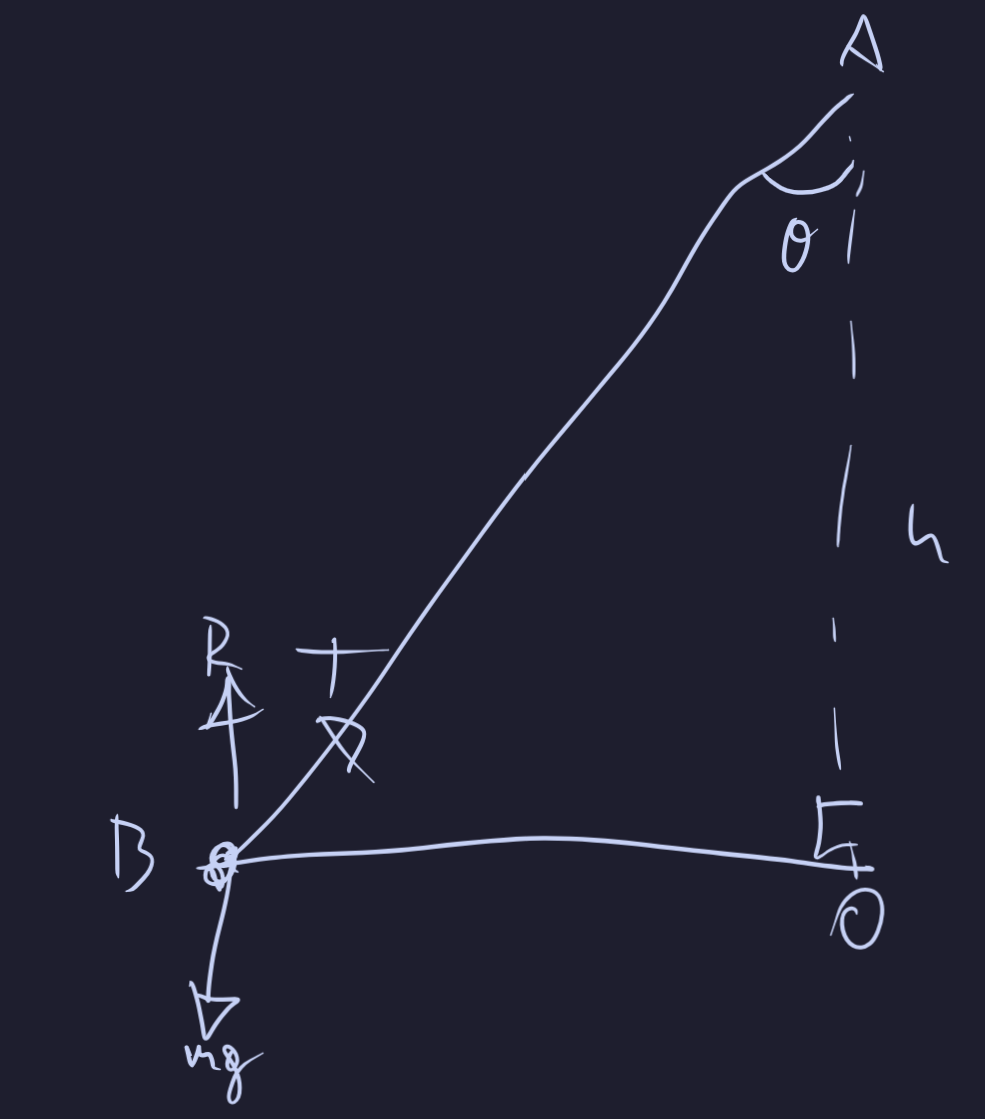 A
θ
h
R
T
B
O
mg